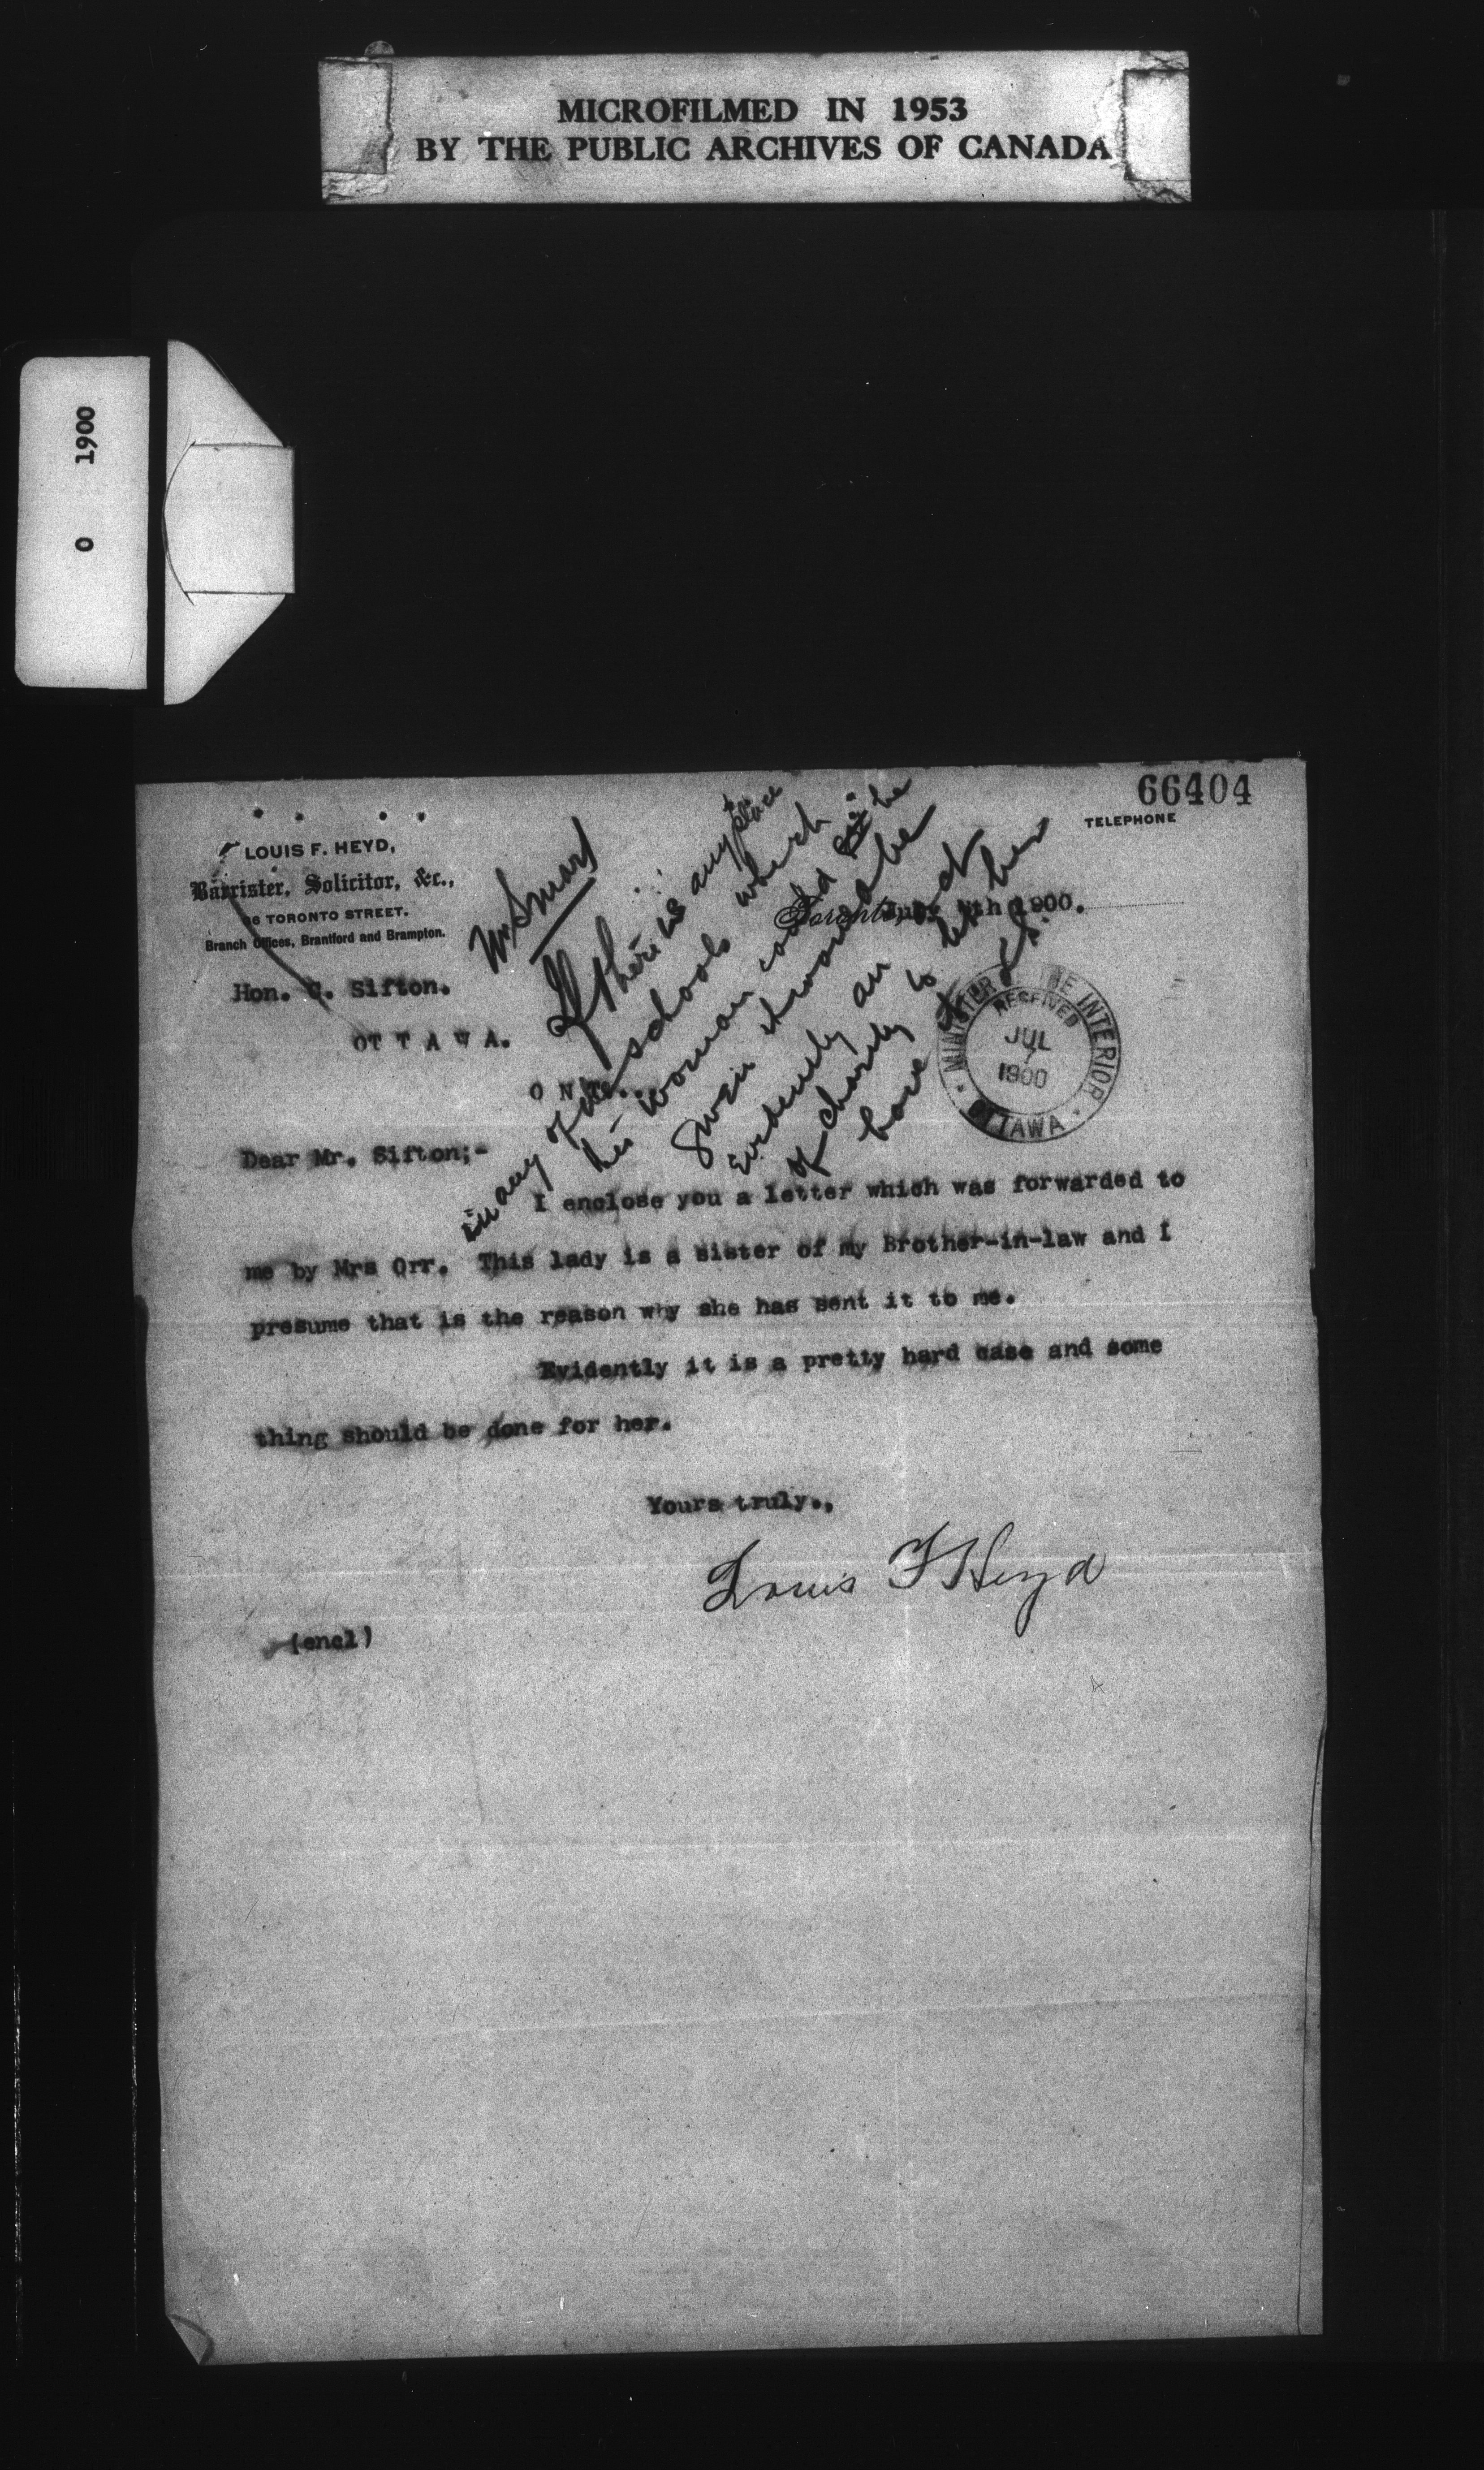 MICROFILMED IN 1953
BY THE PUBLIC ARCHIVES OF CANADA
0 1900
66404
TELEPHONE
LOUIS F. HEYD,
Barrister, Solicitor, &c.,
36 TORONTO STREET.
Branch Offices, Brantford and Brampton.
Toronto, 1900.
Hon. C. Sifton.
OT T A W A.
O N T.
MINISTER OF THE INTERIOR
RECEIVED
JUL
7
1900
OTTAWA
Mr Smart
If there is any place
in any of the schools which
this woman could be
given it would be
evidently an act
of charity to let her
have it.
Dear Mr. Sifton;-
I enclose you a letter which was forwarded to
me by Mrs Orr. This lady is a sister of my Brother-in-law and I
presume that is the reason why she has sent it to me.
Evidently it is a pretty hard case and some
thing should be done for her.
Yours truly.,
Louis F Heyd
(encl)